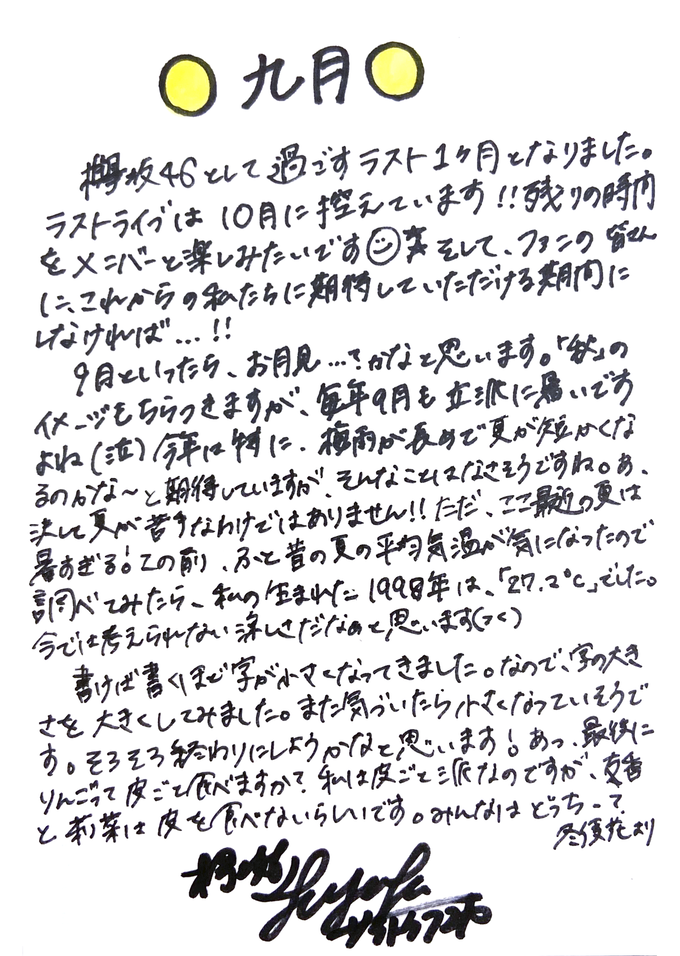 九月
欅坂46として過ごすラスト1ヶ月となりました。
ラストライブは10月に控えています!!残りの時間
をメンバーと楽しみたいです そして、ファンの皆さん
に、これからの私たちに期待していただける期間に
しなければ…!!
9月といったら、お月見…?かなと思います。「秋」の
イメージもちらつきますが、毎年9月も立派に暑いです
よね(泣)今年は特に、梅雨が長めで夏が短かくな
るのかな〜と期待していますが、そんなことはなさそうですね。あ、
決して夏が苦手なわけではありません!!ただ、ここ最近の夏は
暑すぎる!この前、ふと昔の夏の平均気温が気になったので
調べてみたら、私の生まれた1998年は、「27.2℃」でした。
今では考えられない涼しさだなぁと思います(つく)
書けば書くほど字が小さくなってきました。なので、字の大き
さを大きくしてみました。また気づいたら小さくなっていそうで
す。そろそろ終わりにしようかなと思います!あっ、最後に
りんごって皮ごと食べますか?私は皮ごと派なのですが、友香
と莉菜は皮を食べないらしいです。みんなはどっちって?
冬優花より